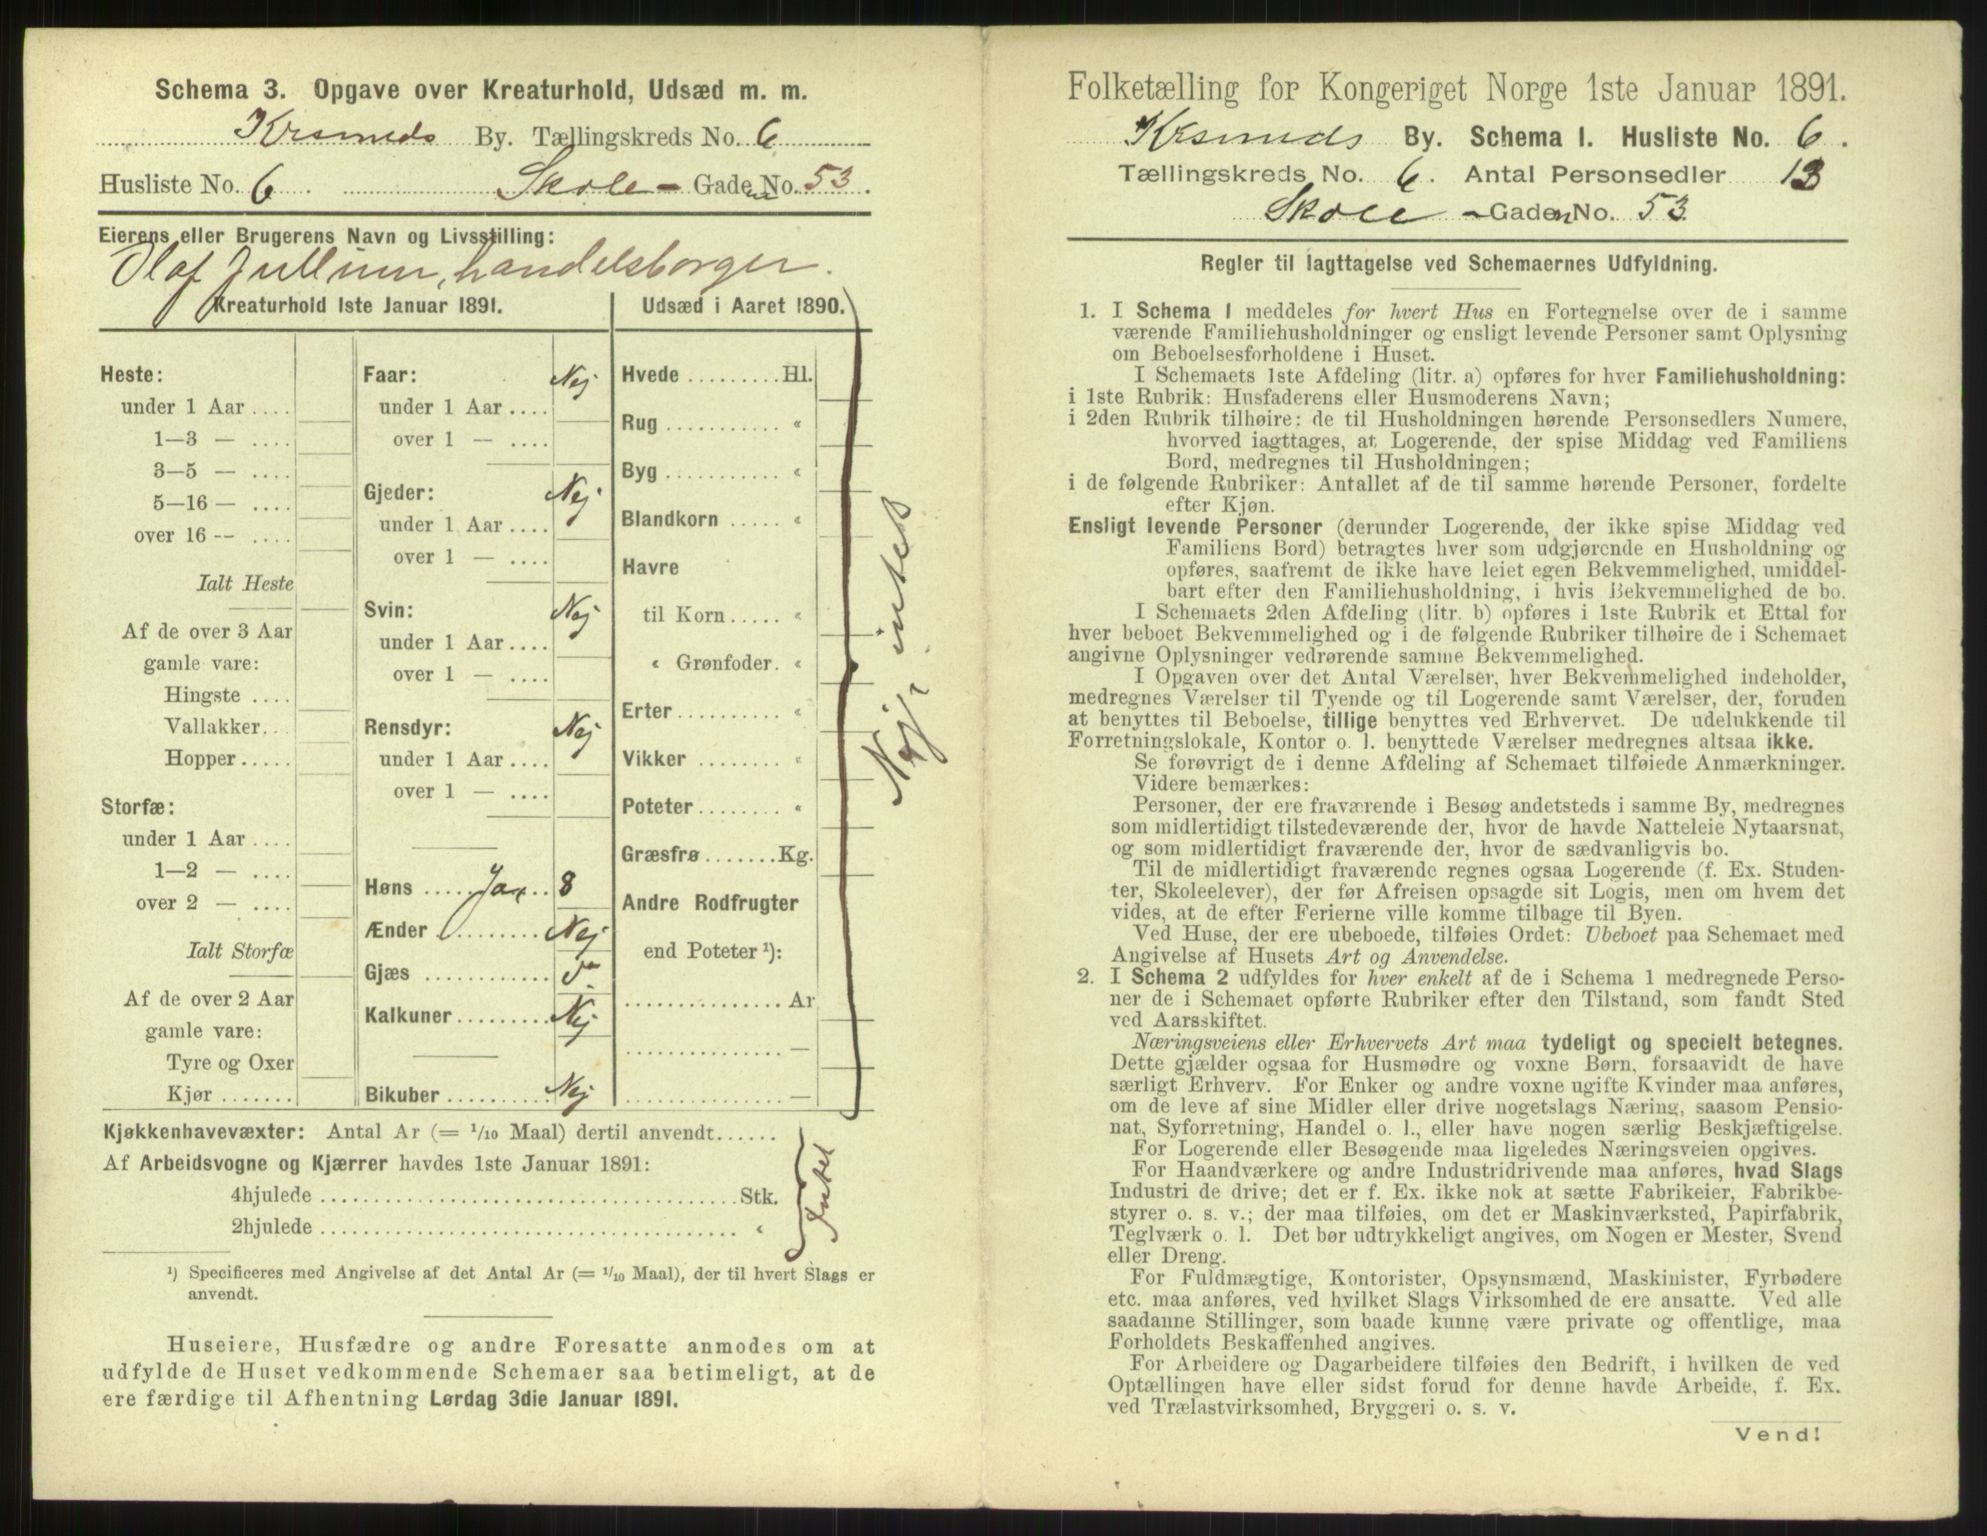 Schema 3. Opgave over Kreaturhold, Udsæd m. m.
Krsunds By. Tællingskreds No. 6
Husliste No. 6. Skole- Gaden No. 53.
Eierens eller Brugerens Navn og Livsstilling:
Olaf Jullum, handelsborger.
Kreaturhold 1ste Januar 1891.
Heste:
under 1 Aar....
1—3 — ....
3—5 — ....
5—16 — ....
over 16 -- ....
Ialt Heste
Af de over 3 Aar
gamle vare:
Hingste....
Vallakker...
Hopper.....
Storfæ:
under 1 Aar....
1—2 — ....
over 2 — ....
Ialt Storfæ
Af de over 2 Aar
gamle vare:
Tyre og Oxer
Kjør.......
Faar: Nej
under 1 Aar....
over 1 — ....
Gjeder: Nej
under 1 Aar....
over 1 — ....
Svin: Nej
under 1 Aar....
over 1 — ....
Rensdyr: Nej
under 1 Aar....
over 1 — ....
Høns..... Ja... 8
Ænder......... Nej
Gjæs..........
Kalkuner......... Nej
Bikuber.......... Nej
Udsæd i Aaret 1890.
Hvede.........Hl.
Rug........... "
Byg........... "
Blandkorn..... "
Havre
til Korn..... "
" Grønfoder. "
Erter.......... "
Vikker........ "
Poteter........ "
Græsfrø.......Kg.
Andre Rodfrugter
end Poteter ¹):
...............Ar
...............—
...............—
Nej, intet
Kjøkkenhavevæxter: Antal Ar (= 1/10 Maal) dertil anvendt......
Af Arbeidsvogne og Kjærrer havdes 1ste Januar 1891:
4hjulede........................................Stk.
2hjulede........................................ "
Intet
¹) Specificeres med Angivelse af det Antal Ar (= 1/10 Maal), der til hvert Slags er
anvendt.
Huseiere, Husfædre og andre Foresatte anmodes om at
udfylde de Huset vedkommende Schemaer saa betimeligt, at de
ere færdige til Afhentning Lørdag 3die Januar 1891.
Folketælling for Kongeriget Norge 1ste Januar 1891.
Krsunds By. Schema I. Husliste No. 6.
Tællingskreds No. 6. Antal Personsedler 13
Skole-Gaden No. 53
Regler til Iagttagelse ved Schemaernes Udfyldning.
1. I Schema 1 meddeles for hvert Hus en Fortegnelse over de i samme
værende Familiehusholdninger og ensligt levende Personer samt Oplysning
om Beboelsesforholdene i Huset.
I Schemaets 1ste Afdeling (litr. a) opføres for hver Familiehusholdning:
i 1ste Rubrik: Husfaderens eller Husmoderens Navn;
i 2den Rubrik tilhøire: de til Husholdningen hørende Personsedlers Numere,
hvorved iagttages, at Logerende, der spise Middag ved Familiens
Bord, medregnes til Husholdningen;
i de følgende Rubriker: Antallet af de til samme hørende Personer, fordelte
efter Kjøn.
Ensligt levende Personer (derunder Logerende, der ikke spise Middag ved
Familiens Bord) betragtes hver som udgjørende en Husholdning og
opføres, saafremt de ikke have leiet egen Bekvemmelighed, umiddel-
bart efter den Familiehusholdning, i hvis Bekvemmelighed de bo.
I Schemaets 2den Afdeling (litr. b) opføres i 1ste Rubrik et Ettal for
hver beboet Bekvemmelighed og i de følgende Rubriker tilhøire de i Schemaet
angivne Oplysninger vedrørende samme Bekvemmelighed.
I Opgaven over det Antal Værelser, hver Bekvemmelighed indeholder,
medregnes Værelser til Tyende og til Logerende samt Værelser, der, foruden
at benyttes til Beboelse, tillige benyttes ved Erhvervet. De udelukkende til
Forretningslokale, Kontor o. l. benyttede Værelser medregnes altsaa ikke.
Se forøvrigt de i denne Afdeling af Schemaet tilføiede Anmærkninger.
Videre bemærkes:
Personer, der ere fraværende i Besøg andetsteds i samme By, medregnes
som midlertidigt tilstedeværende der, hvor de havde Natteleie Nytaarsnat,
og som midlertidigt fraværende der, hvor de sædvanligvis bo.
Til de midlertidigt fraværende regnes ogsaa Logerende (f. Ex. Studen-
ter, Skoleelever), der før Afreisen opsagde sit Logis, men om hvem det
vides, at de efter Ferierne ville komme tilbage til Byen.
Ved Huse, der ere ubeboede, tilføies Ordet: Ubeboet paa Schemaet med
Angivelse af Husets Art og Anvendelse.
2. I Schema 2 udfyldes for hver enkelt af de i Schema 1 medregnede Perso-
ner de i Schemaet opførte Rubriker efter den Tilstand, som fandt Sted
ved Aarsskiftet.
Næringsveiens eller Erhvervets Art maa tydeligt og specielt betegnes.
Dette gjælder ogsaa for Husmødre og voxne Børn, forsaavidt de have
særligt Erhverv. For Enker og andre voxne ugifte Kvinder maa anføres,
om de leve af sine Midler eller drive nogetslags Næring, saasom Pensio-
nat, Syforretning, Handel o. l., eller have nogen særlig Beskjæftigelse.
For Logerende eller Besøgende maa ligeledes Næringsveien opgives.
For Haandværkere og andre Industridrivende maa anføres, hvad Slags
Industri de drive; det er f. Ex. ikke nok at sætte Fabrikeier, Fabrikbe-
styrer o. s. v.; der maa tilføies, om det er Maskinværksted, Papirfabrik,
Teglværk o. l. Det bør udtrykkeligt angives, om Nogen er Mester, Svend
eller Dreng.
For Fuldmægtige, Kontorister, Opsynsmænd, Maskinister, Fyrbødere
etc. maa anføres, ved hvilket Slags Virksomhed de ere ansatte. Ved alle
saadanne Stillinger, som baade kunne være private og offentlige, maa
Forholdets Beskaffenhed angives.
For Arbeidere og Dagarbeidere tilføies den Bedrift, i hvilken de ved
Optællingen have eller sidst forud for denne havde Arbeide, f. Ex.
ved Trælastvirksomhed, Bryggeri o. s. v.
Vend!